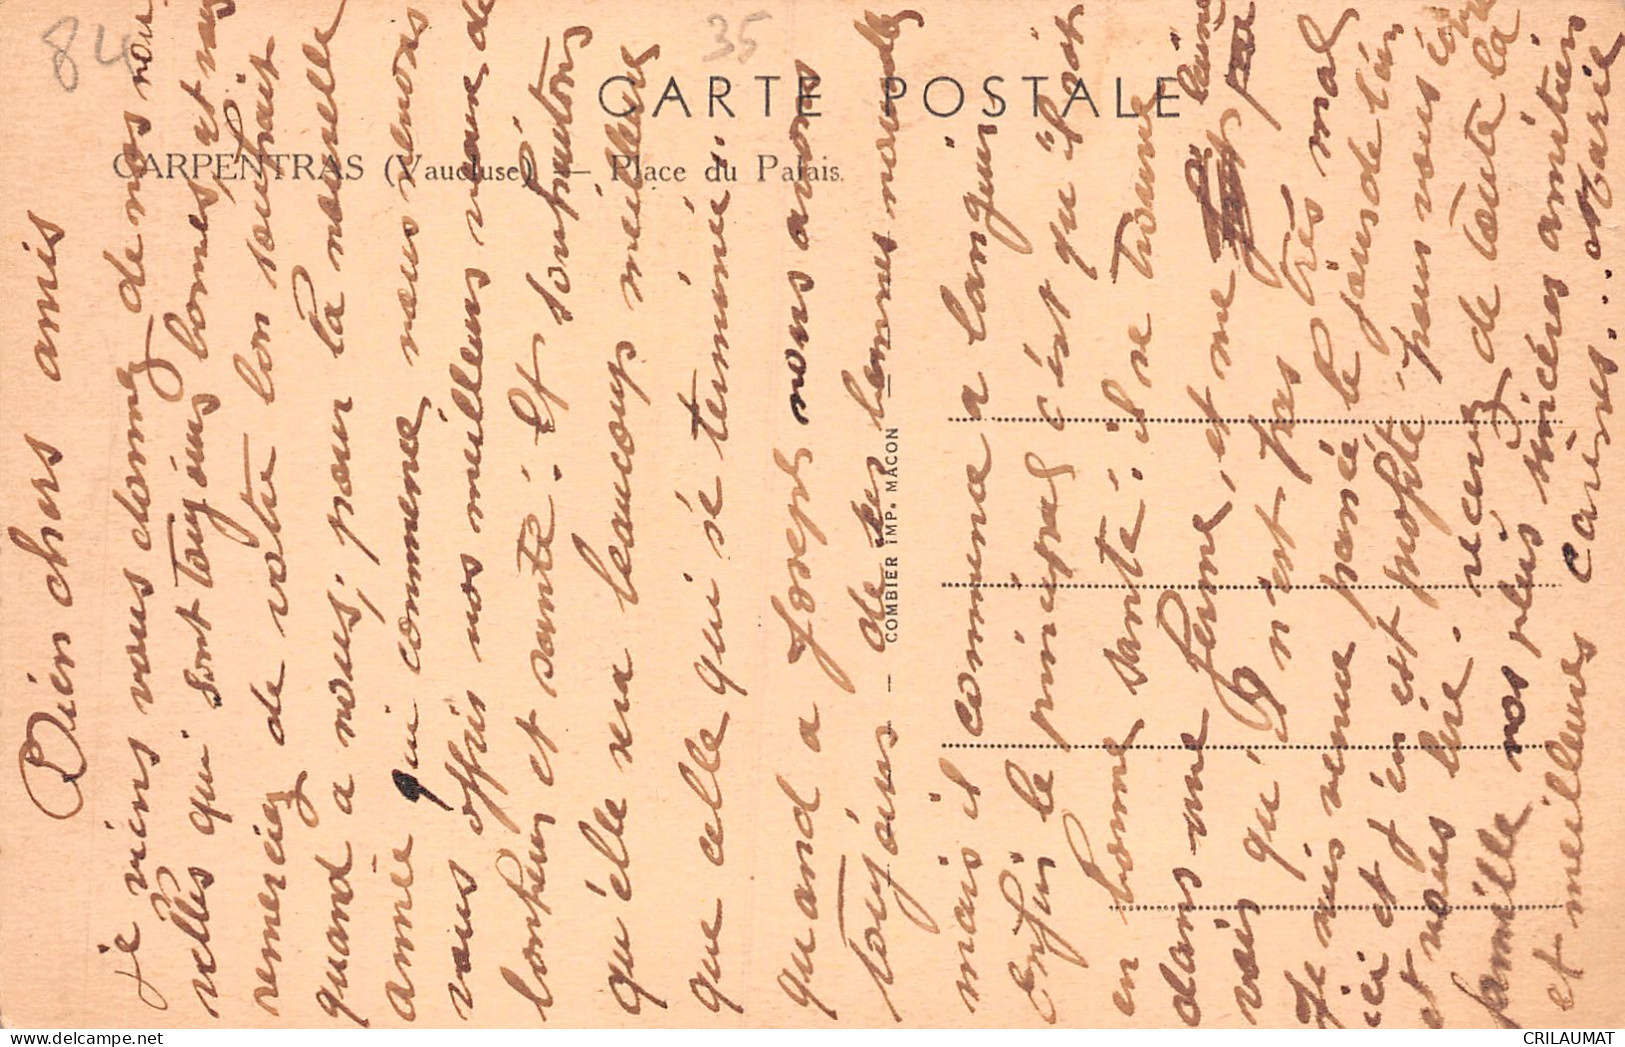 84
35
CARTE POSTALE
CARPENTRAS (Vaucluse) — Place du Palais.
COMBIER IMP. MACON
Bien chers amis
je viens vous donnez de nos nou
velles qui sont toujours bonnes et vous
remerciez de votre bon souhait
quand a nous; pour la nouvelle
année qui commence nous venons
vous offrir nos meilleurs vœux de
bonheur et santé. Et souhaitons
qu'élle sera beaucoup meilleure
que celle qui s'é terminée.
quand a Joseph nous avons
toujours de ses bonnes nouvelles
mais il commence a languir
Enfin le principal c'ést qu'il soit
en bonne santé: il se trouve
dans une ferme, et me
vois qu'il n'est pas très mal
Je suis venue passé le jour de l'an
ici et j'en est profité pour vous écrire
et vous lire. recevez de toute la
famille nos plus sincères amitiés
et meilleures carèsses... Marie
CRILAUMAT